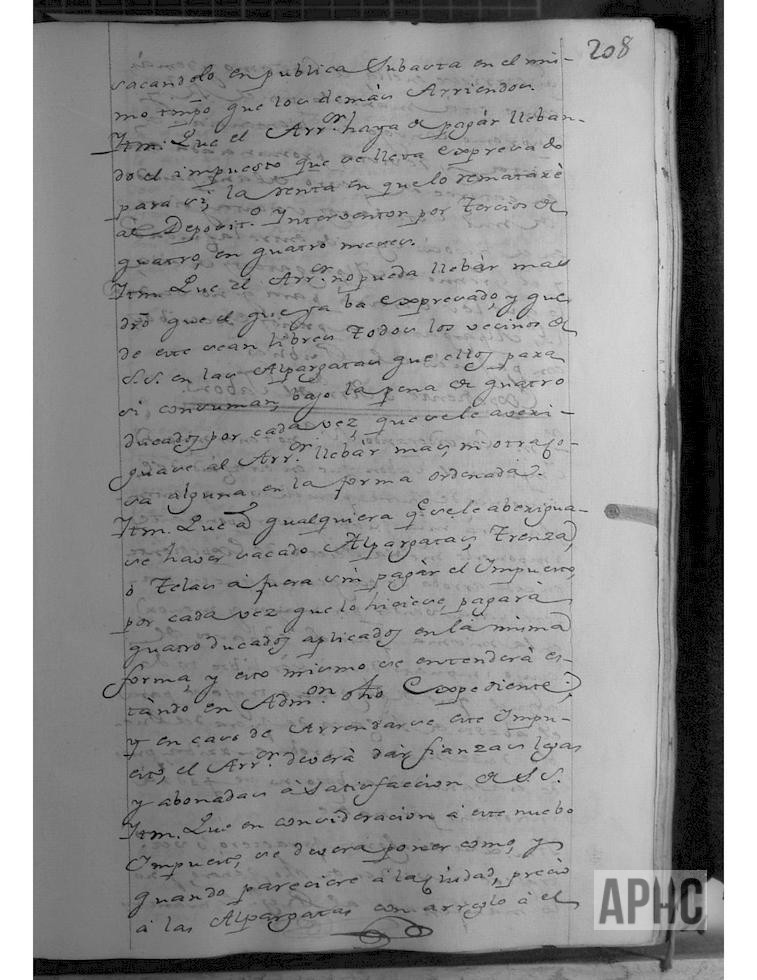 208
sacandolo en publica Subasta en el mis-
mo tmpō que los demàs Arriendos.
Itm. Que el Arr.or haya de pagàr lleban-
do el impuesto que se lleva expresado
para sì, la renta en que lo rematare
al Deposit.o Interventor por tercios de
quatro, en quatro meses.
Itm. Que el Arr.or no pueda llebàr mas
dr̃o que el que ya ba expresado, y que
de este sean libres todos los vecinos de
S.S. en las Alpargatas que ellos para
si consuman, bajo la pena de quatro
ducados por cada vez, que se le averi-
guase al Arr.or llebàr mas, ni otra co-
sa alguna en la forma ordenada.
Itm. Que a qualquiera q.e se le aberigua-
se haver sacado Alpargatas, trenza,
o Telas a fuera sin pagàr el Impuesto,
por cada vez que lo hiciese, pagarà
quatro ducados aplicados en la misma
forma, y esto mismo se entenderà es-
tàndo en Adm.on dho Expediente;
y en caso de Arrendarse este Impu-
esto, el Arr.or deverà dàr fianzas legas
y abonadas à Satisfaccion de S.S.
Itm. Que en consideracion à este nuebo
Impuesto, se deverà poner como, y
quando pareciere à la Ciudad, precio
à las Alpargatas con arreglo à el
APHC